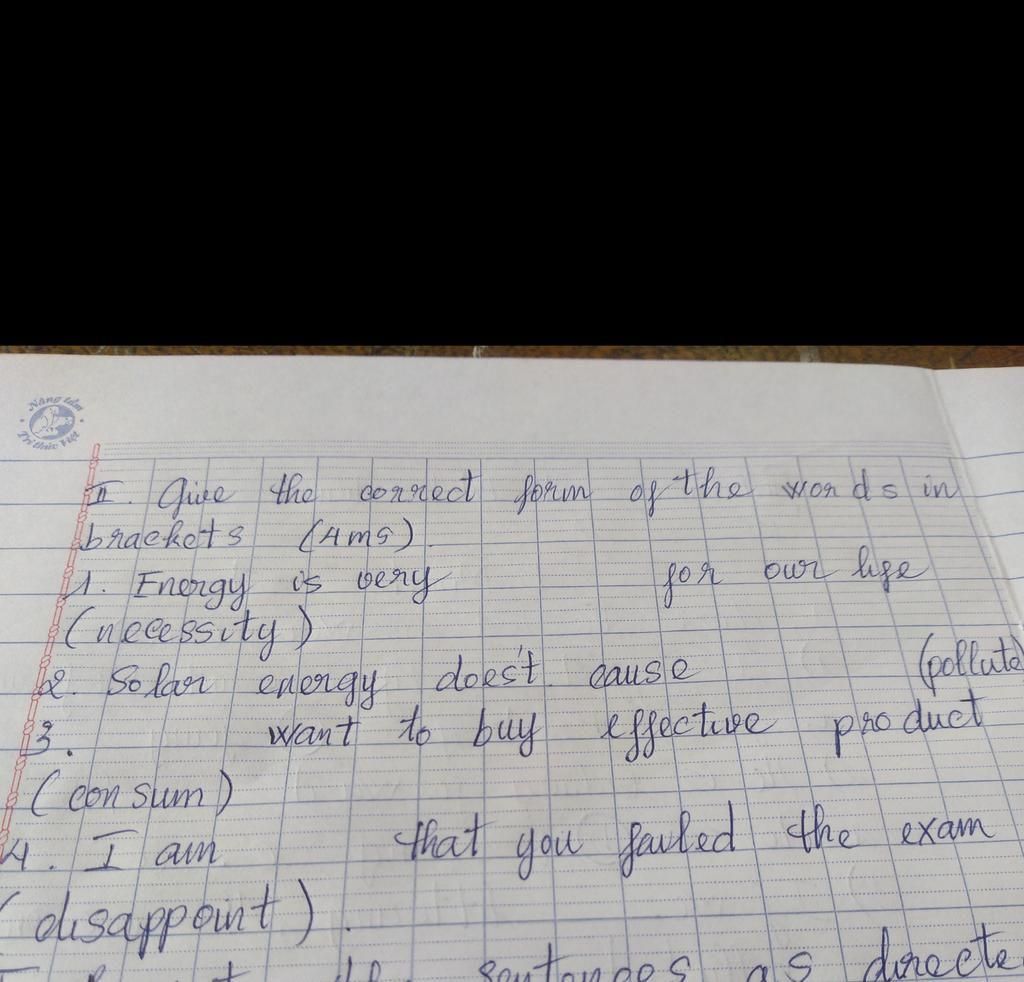 Nâng tầm
Trí thức Việt
II. Give the correct form of the words in
brackets (4ms).
1. Energy is very for our life
(necessity)
2. Solar energy does't cause (pollute)
3. want to buy effective product
(consum)
4. I am that you failed the exam
(disappoint).
sentences as directe